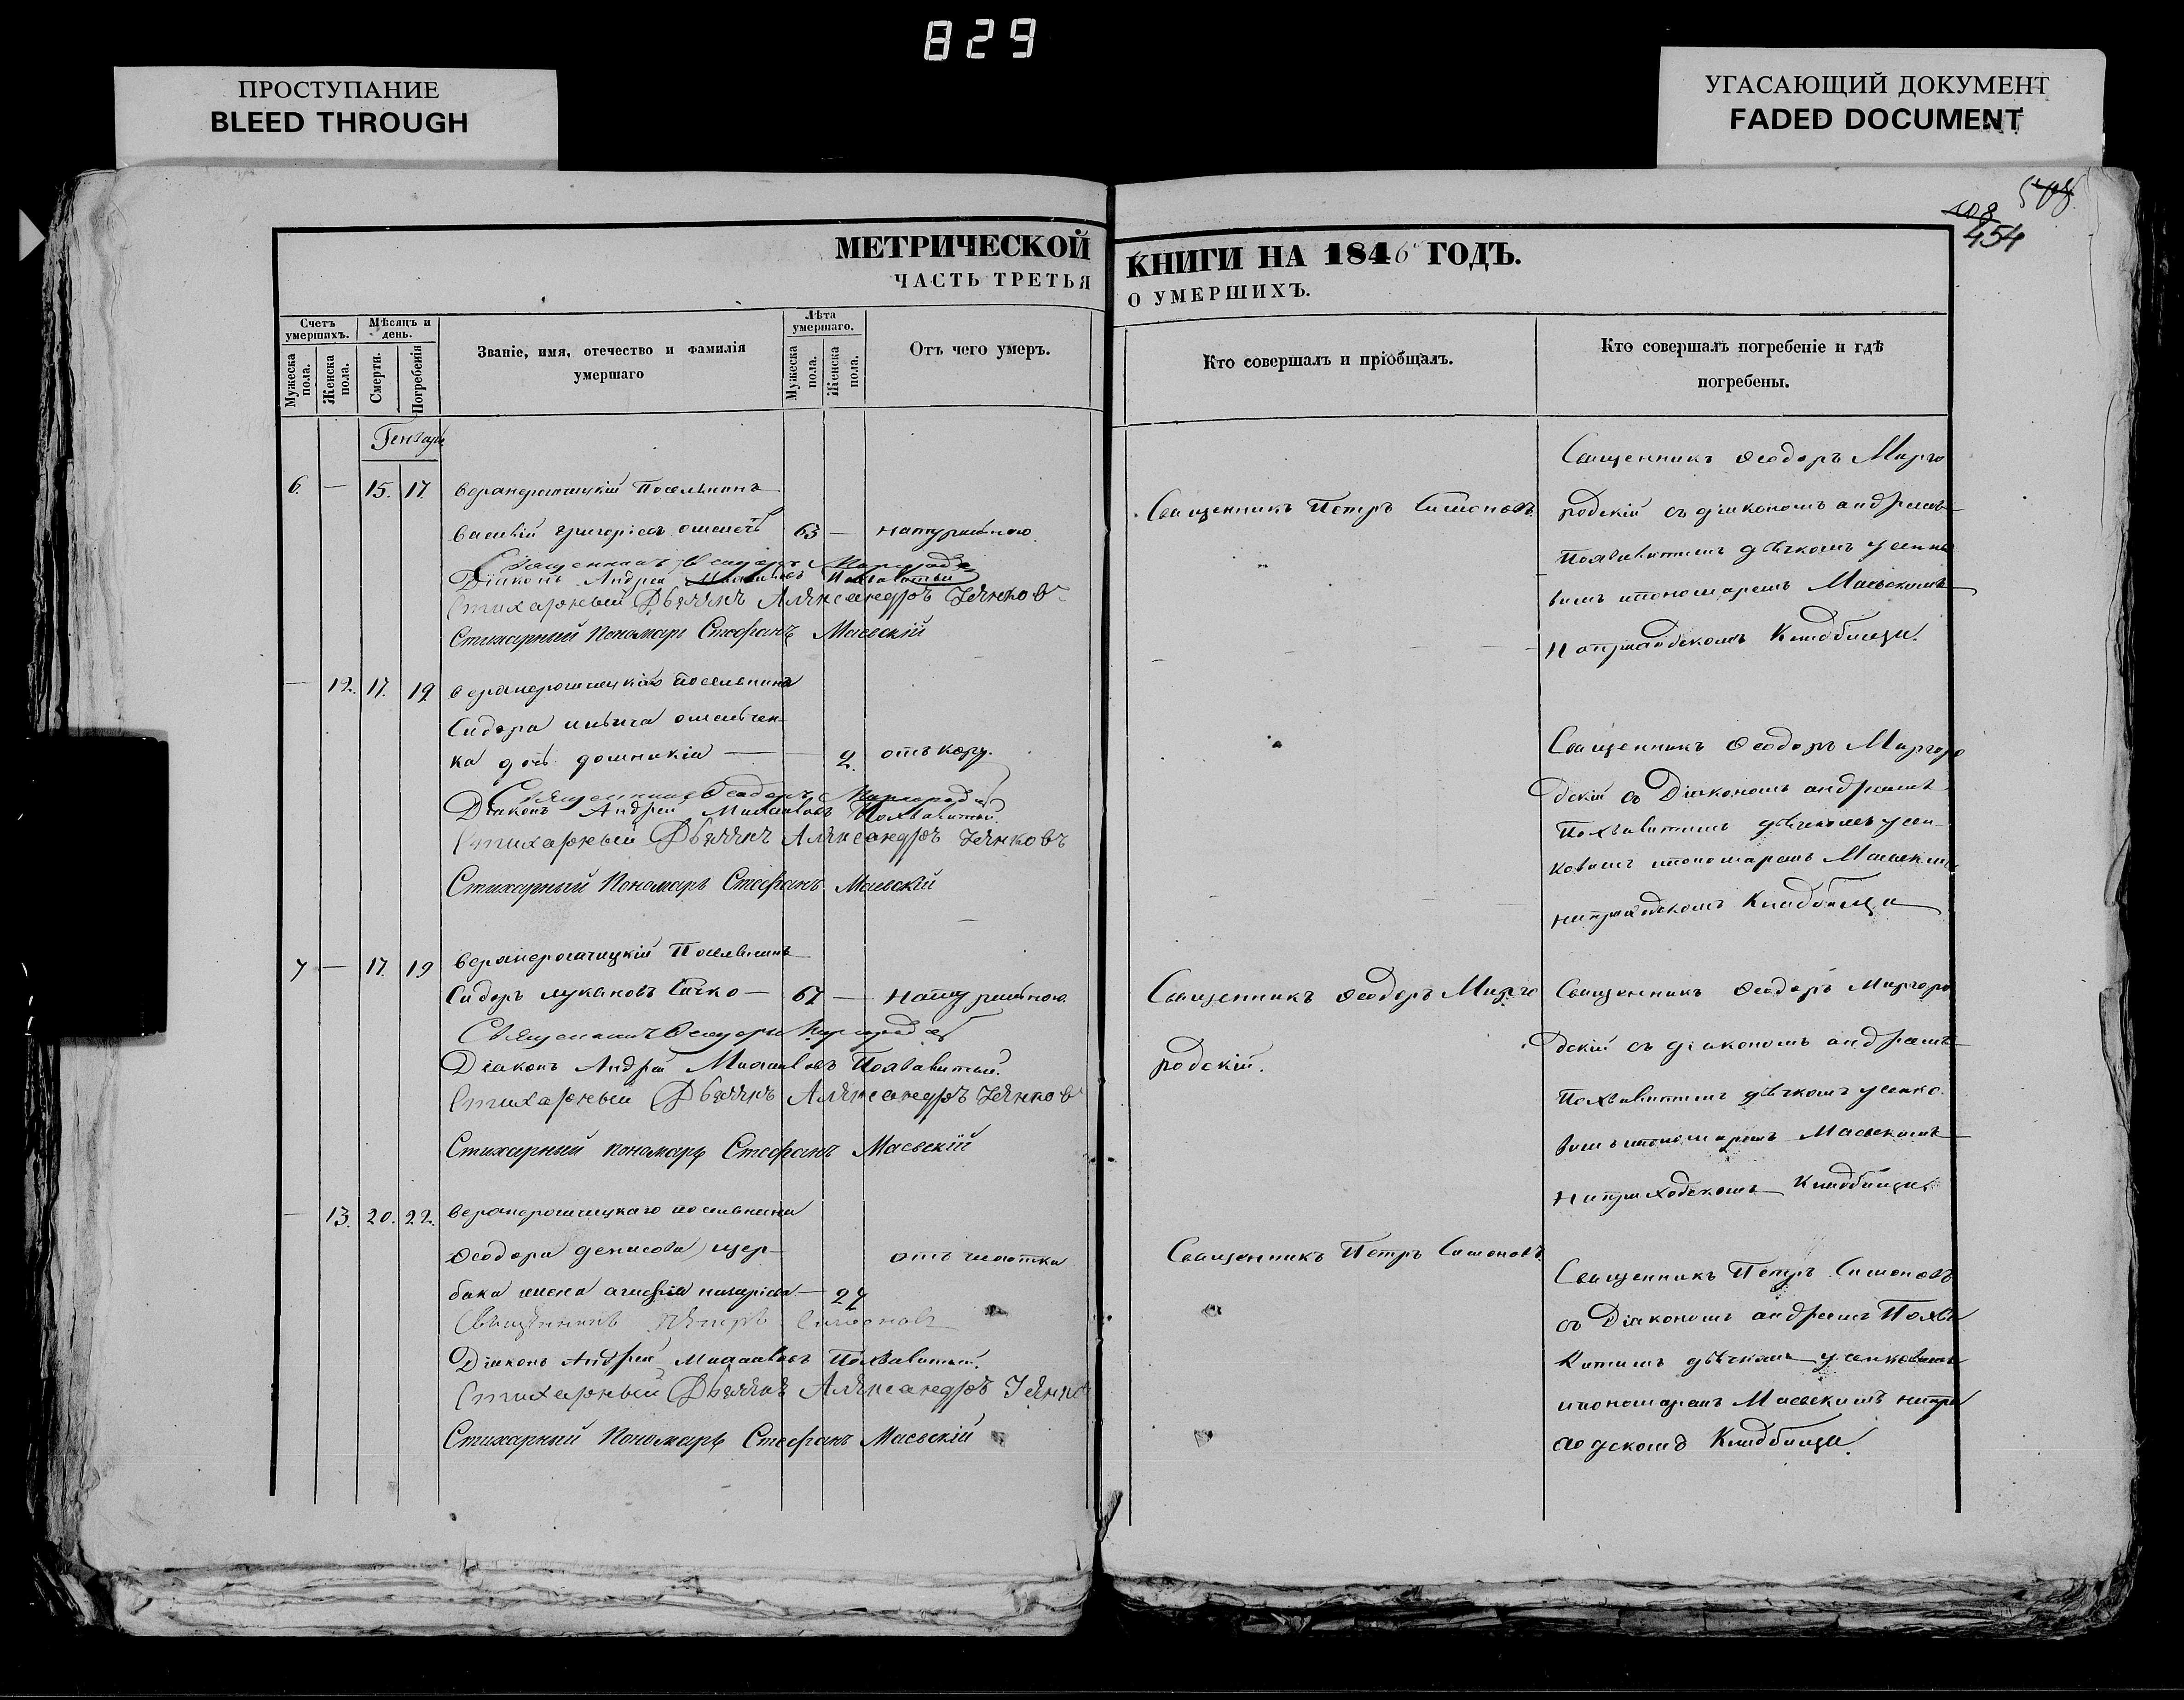 829
ПРОСТУПАНИЕ
BLEED THROUGH
УГАСАЮЩИЙ ДОКУМЕНТ
FADED DOCUMENT
108
454
МЕТРИЧЕСКОЙ
ЧАСТЬ ТРЕТЬЯ
КНИГИ НА 1846 ГОДЪ.
О УМЕРШИХЪ.
Счетъ умершихъ.
Мужеска пола.
Женска пола.
Мѣсяцъ и день.
Смерти.
Погребенія
Званіе, имя, отечество и фамилія
умершаго
Лѣта умершаго.
Мужеска пола.
Женска пола.
Отъ чего умеръ.
Кто совершалъ и пріобщалъ.
Кто совершалъ погребеніе и гдѣ
погребены.
Генваря
6. — 15. 17. Поселянинъ
Василій Григоріевъ 63 — натуральною
Священникъ Ѳеодоръ Миргород
Діаконъ Андрей Михаиловъ Похвалитый
Стихарный Дьячекъ Александръ Усенковъ
Стихарный Пономарь Стефанъ Маевскій
Священникъ Петръ Симоновъ
Священникъ Ѳеодоръ Мирго
родскій съ діакономъ андреемъ
Похвалитымъ дьячкомъ усенко
вимъ ипономаремъ Маевскимъ
Наприходскомъ Кладбищи.
— 12. 17. 19 поселянина
Сидора
ка дочь 2. отъ кору.
Священникъ Ѳеодоръ Миргород
Діаконъ Андрей Михаиловъ Похвалитый.
Стихарный Дьячекъ Александръ Усенковъ
Стихарный Пономарь Стефанъ Маевскій
Священникъ Ѳеодоръ Миргоро
дскій съ Діакономъ андреемъ
Похвалитымъ дьячкомъ усен-
ковимъ ипономаремъ Маевскимъ
наприходскомъ Кладбищи
7 — 17. 19 Поселянинъ
Сидоръ лукановъ 67 — натуральною
Священникъ Ѳеодоръ Миргород
Діаконъ Андрей Михаиловъ Похвалитый.
Стихарный Дьячекъ Александръ Усенковъ
Стихарный пономарь Стефанъ Маевскій
Священникъ Ѳеодоръ Мирго
родскій.
Священникъ Ѳеодоръ Миргоро
дскій съ діакономъ андреемъ
Похвалитымъ дьячкомъ усенко
вимъ ипономаремъ Маевскимъ
Наприходскомъ Кладбищи.
— 13. 20. 22. поселянина
Ѳеодора денисова щер-
бака жена — 27
отъ
Священникъ Петръ Симоновъ
Діаконъ Андрей Михаиловъ Похвалитый.
Стихарный Дьячекъ Александръ Усенко
Стихарный Пономарь Стефанъ Маевскій
Священникъ Петръ Симоновъ
Священникъ Петръ Симоновъ
съ Діакономъ андреемъ Похва
литимъ дьячкомъ усенковимъ
ипономаремъ Маевскимъ напри
ходскомъ Кладбищи.